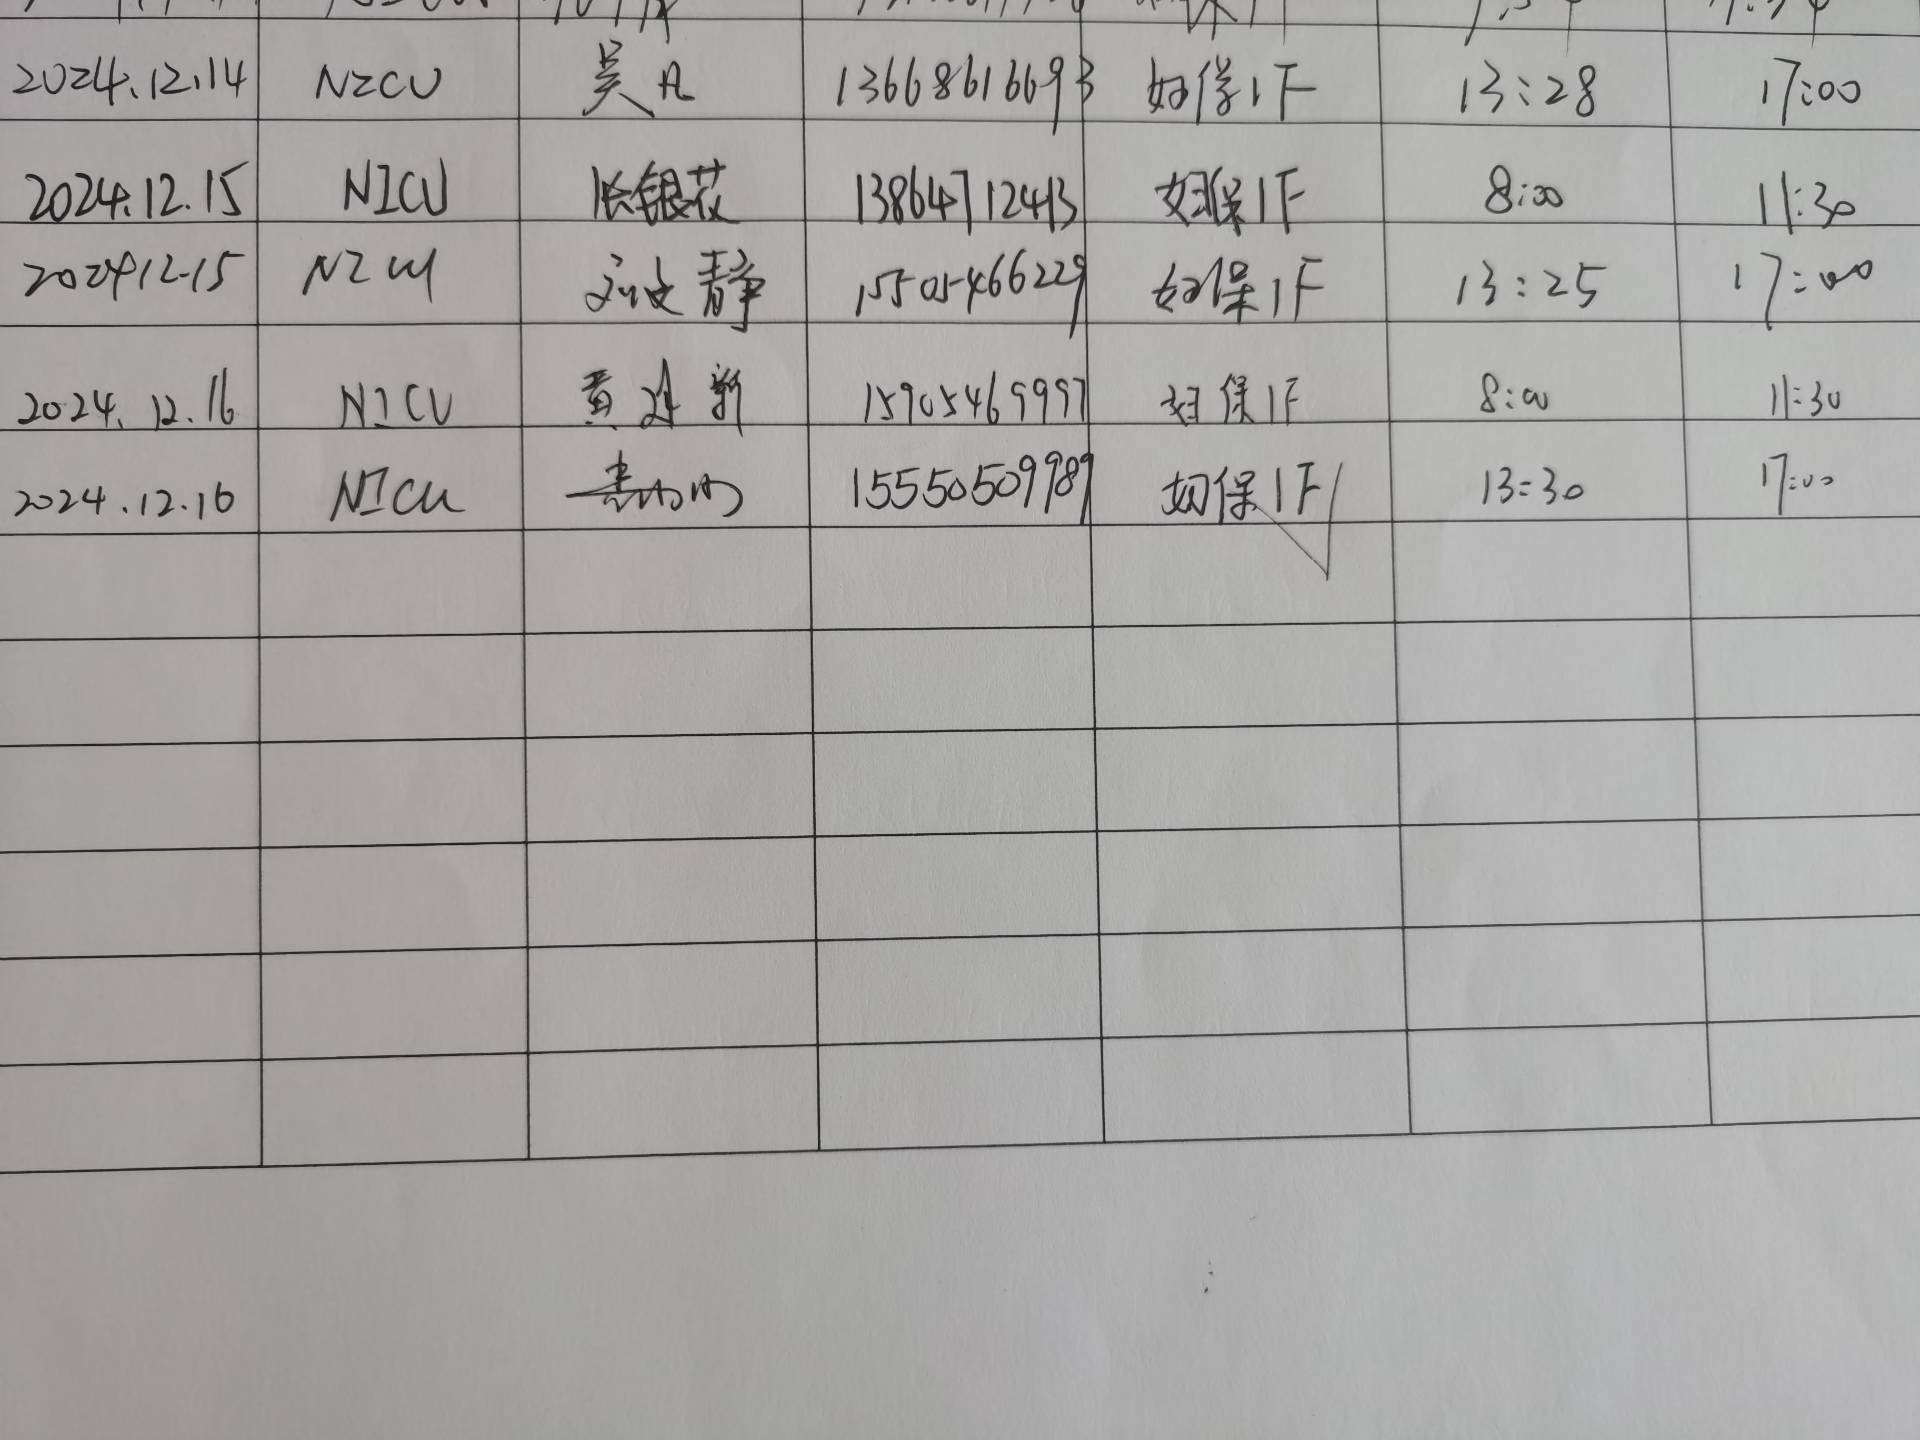 2024.12.14 NICU 吴凡 13668616693 妇保1F 13:28 17:00
2024.12.15 NICU 张银花 13864712413 妇保1F 8:00 11:30
2024.12.15 NICU 刘文静 15505466229 妇保1F 13:25 17:00
2024.12.16 NICU 黄建新 15905469997 妇保1F 8:00 11:30
2024.12.16 NICU 15550509989 妇保1F 13:30 17:00